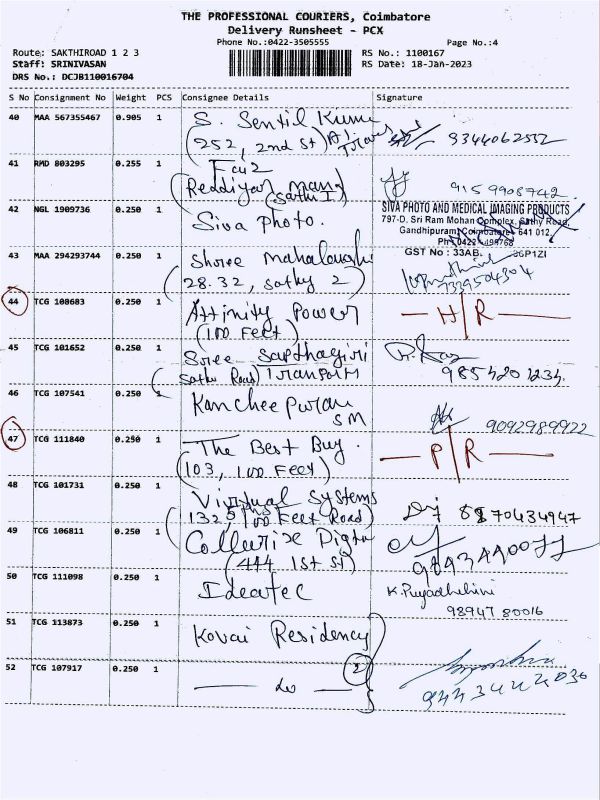 THE PROFESSIONAL COURIERS, Coimbatore
Delivery Runsheet - PCX
Phone No.:0422-3505555
Page No.:4
Route: SAKTHIROAD 1 2 3
RS No.: 1100167
Staff: SRINIVASAN
RS Date: 18-Jan-2023
DRS No.: DCJB110016704
S No Consignment No Weight PCS Consignee Details Signature
40 MAA 567355467 0.905 1 S. Sentil Kuma
(252, 2nd St) 9344062552
41 RMD 803295 0.255 1
(Reddiyar
9159908742.
42 NGL 1909736 0.250 1 Siva Photo.
SIVA PHOTO AND MEDICAL IMAGING PRODUCTS
797-D, Sri Ram Mohan Complex, Sathy Road,
Gandhipuram, Coimbatore - 641 012.
GST No : 33AB.
43 MAA 294293744 0.250 1 Shree Mahalaxmi
(28.32, Sathy 2)
7339504304
44 TCG 108683 0.250 1 Affinity Power — H/R —
(100 Feet)
45 TCG 101652 0.250 1 Sree Sapthagiri
(Sathy Road) Transport 9854201234.
46 TCG 107541 0.250 1 Kancheepuram
SM 9092989922
47 TCG 111840 0.250 1 The Best Buy. — P/R —
(103, 100 Feet)
48 TCG 101731 0.250 1 Virtual Systems
(132, 100 Feet Road) 8870434947
49 TCG 106811 0.250 1
(444 1st St)
50 TCG 111098 0.250 1 Ideatec K. Priyadharshini
98947 80016
51 TCG 113873 0.250 1 Kovai Residency
52 TCG 107917 0.250 1 — do — 2